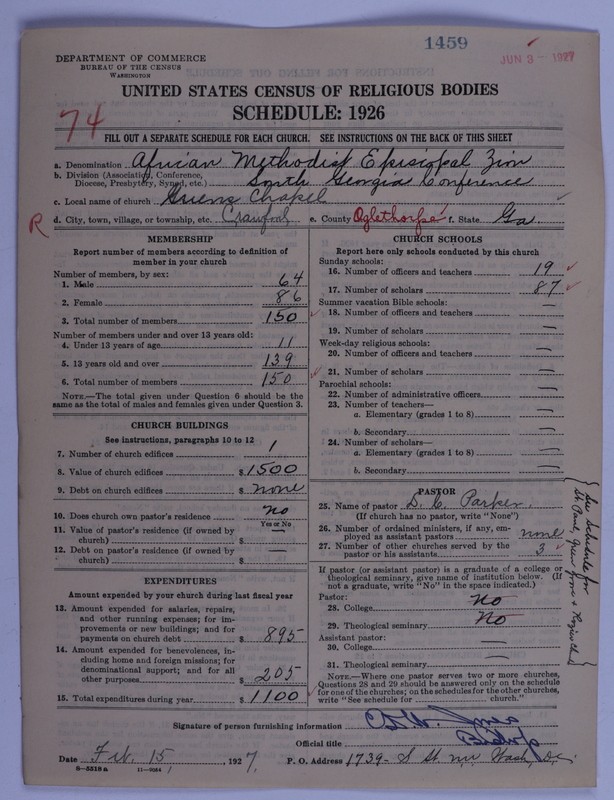 1459
JUN 3 - 1927
DEPARTMENT OF COMMERCE
BUREAU OF THE CENSUS
WASHINGTON
UNITED STATES CENSUS OF RELIGIOUS BODIES
SCHEDULE: 1926
74
FILL OUT A SEPARATE SCHEDULE FOR EACH CHURCH. SEE INSTRUCTIONS ON THE BACK OF THIS SHEET
a. Denomination African Methodist Episcopal Zion
b. Division (Association, Conference,
Diocese, Presbytery, Synod, etc.) South Georgia Conference
c. Local name of church Chapel
R
d. City, town, village, or township, etc. Crawford e. County Oglethorpe f. State Ga
MEMBERSHIP
Report number of members according to definition of
member in your church
Number of members, by sex:
1. Male 64
2. Female 86
3. Total number of members 150
Number of members under and over 13 years old:
4. Under 13 years of age 11
5. 13 years old and over 139
6. Total number of members 150
NOTE.—The total given under Question 6 should be
same as the total of males and females given under Question 3.
CHURCH BUILDINGS
See instructions, paragraphs 10 to 12
7. Number of church edifices 1
8. Value of church edifices $1500
9. Debt on church edifices $ none
10. Does church own pastor's residence no
Yes or No
11. Value of pastor's residence (if owned by
church) $ —
12. Debt on pastor's residence (if owned by
church) $ —
EXPENDITURES
Amount expended by your church during last fiscal year
13. Amount expended for salaries, repairs,
and other running expenses; for im-
provements or new buildings; and for
payments on church debt $ 895
14. Amount expended for benevolences, in-
cluding home and foreign missions; for
denominational support; and for all
other purposes $ 205
15. Total expenditures during year $ 1100
CHURCH SCHOOLS
Report here only schools conducted by this church
Sunday schools:
16. Number of officers and teachers 19
17. Number of scholars 87
Summer vacation Bible schools:
18. Number of officers and teachers —
19. Number of scholars —
Week-day religious schools:
20. Number of officers and teachers —
21. Number of scholars —
Parochial schools:
22. Number of administrative officers —
23. Number of teachers—
a. Elementary (grades 1 to 8) —
b. Secondary —
24. Number of scholars—
a. Elementary (grades 1 to 8) —
b. Secondary —
PASTOR
25. Name of pastor Parker
(If church has no pastor, write "None")
26. Number of ordained ministers, if any, em-
ployed as assistant pastors none
27. Number of other churches served by the
pastor or his assistants 3
If pastor (or assistant pastor) is a graduate of a college or
theological seminary, give name of institution below. (If
not a graduate, write "No" in the space indicated.)
Pastor:
28. College No
29. Theological seminary No
Assistant pastor:
30. College —
31. Theological seminary —
NOTE.—Where one pastor serves two or more churches,
Questions 28 and 29 should be answered only on the schedule
for one of the churches; on the schedules for the other churches,
write "See schedule for church."
See Schedule for
St Paul, Green Grove &
Signature of person furnishing information
Official title Bishop
Date Feb. 15, 1927. P. O. Address 1739- S St. nw Wash, D.C.
6-5518 a 11-8064